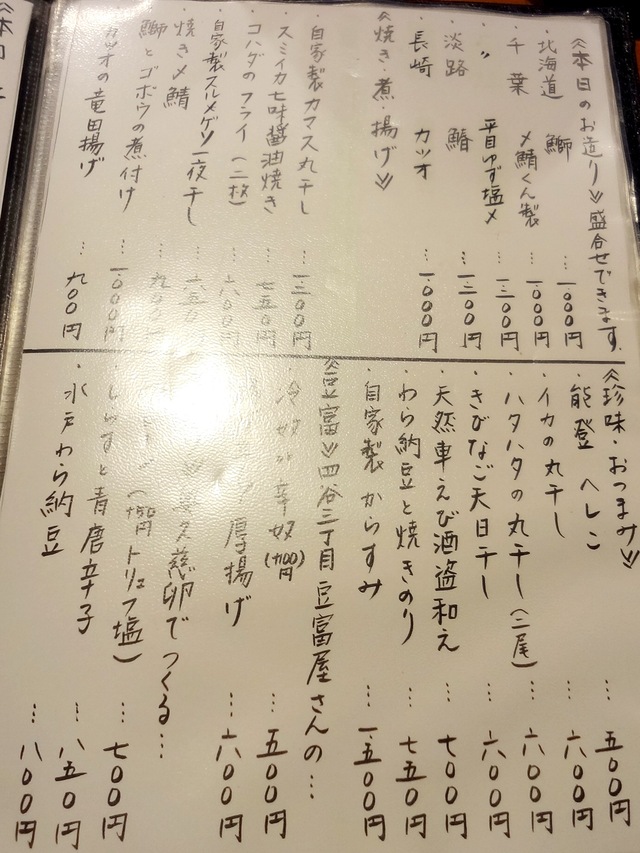 《本日のお造り》盛合せできます.
・北海道 鰤 … 一、000円
・千葉 〆鯖くん製 … 一、000円
・〃 平目ゆず塩〆 … 一、三00円
・淡路 鰆 … 一、二00円
・長崎 カツオ … 一、000円
《焼き・煮・揚げ》
・自家製カマス丸干し … 一、二00円
・スミイカ七味醤油焼き … 七五0円
・コハダのフライ(二枚) … 六00円
・自家製スルメゲソ一夜干し … 六五0円
・焼き〆鯖 … 九00円
・鰤とゴボウの煮付け … 一、000円
・カツオの竜田揚げ … 九00円
《珍味・おつまみ》
・能登 へしこ … 五00円
・イカの丸干し … 六00円
・ハタハタの丸干し(二尾) … 六00円
・きびなご天日干し … 六00円
・天然車えび酒盗和え … 七00円
・わら納豆と焼きのり … 七五0円
・自家製 からすみ … 一、五00円
《豆富》四谷三丁目 豆富屋さんの…
・冷奴 辛奴 … 五00円
厚揚げ … 六00円
卵でつくる…
トリュフ塩) … 七00円
・しらすと青唐辛子 … 八五0円
・水戸わら納豆 … 八00円